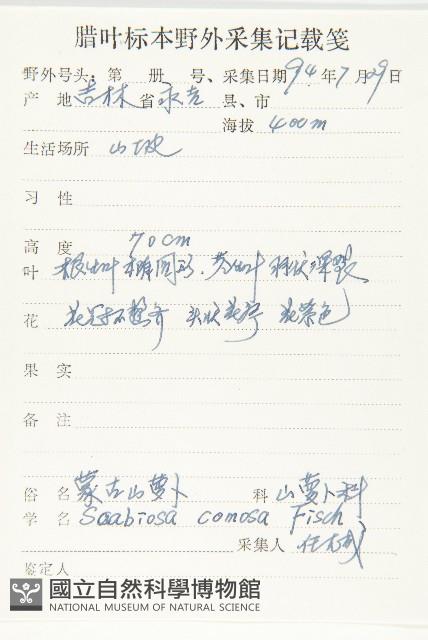 腊叶标本野外采集记载笺
野外号头：第 册 号、采集日期 94 年 7 月 29 日
产 地 吉林 省 永吉 县、市
海拔 400m
生活场所 山坡
习 性
高 度 70cm
叶 根出叶 椭圆形、茎出叶 羽状深裂
花 花冠不整齐 头状花序 花紫色
果 实
备 注
俗 名 蒙古山萝卜 科 山萝卜科
学 名 Scabiosa comosa Fisch
采集人 任
鉴定人
國立自然科學博物館
NATIONAL MUSEUM OF NATURAL SCIENCE